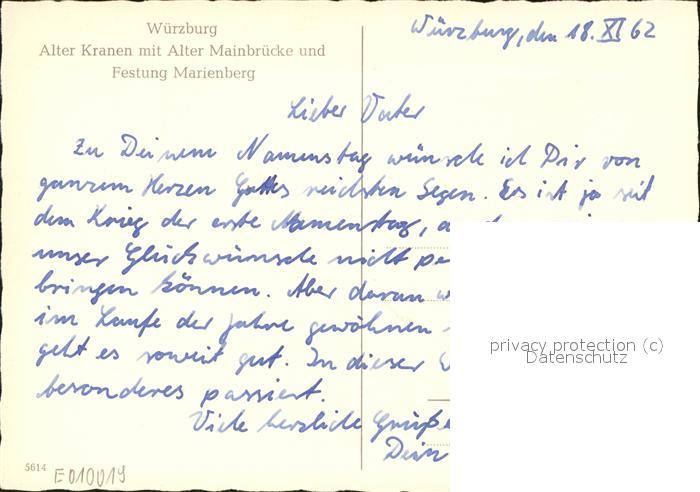 Würzburg
Alter Kranen mit Alter Mainbrücke und
Festung Marienberg
Würzburg, den 18. XI 62
Lieber Vater
Zu Deinem Namenstag wünsche ich Dir von
ganzem Herzen Gottes reichsten Segen. Es ist ja seit
dem Krieg der erste Namenstag, a
unser Glückwünsche nicht pe
bringen können. Aber daran w
im Laufe der Jahre gewöhnen
geht es soweit gut. In dieser W
besonderes passiert.
Viele herzliche Grüße
Dein
privacy protection (c)
Datenschutz
5614
E010019